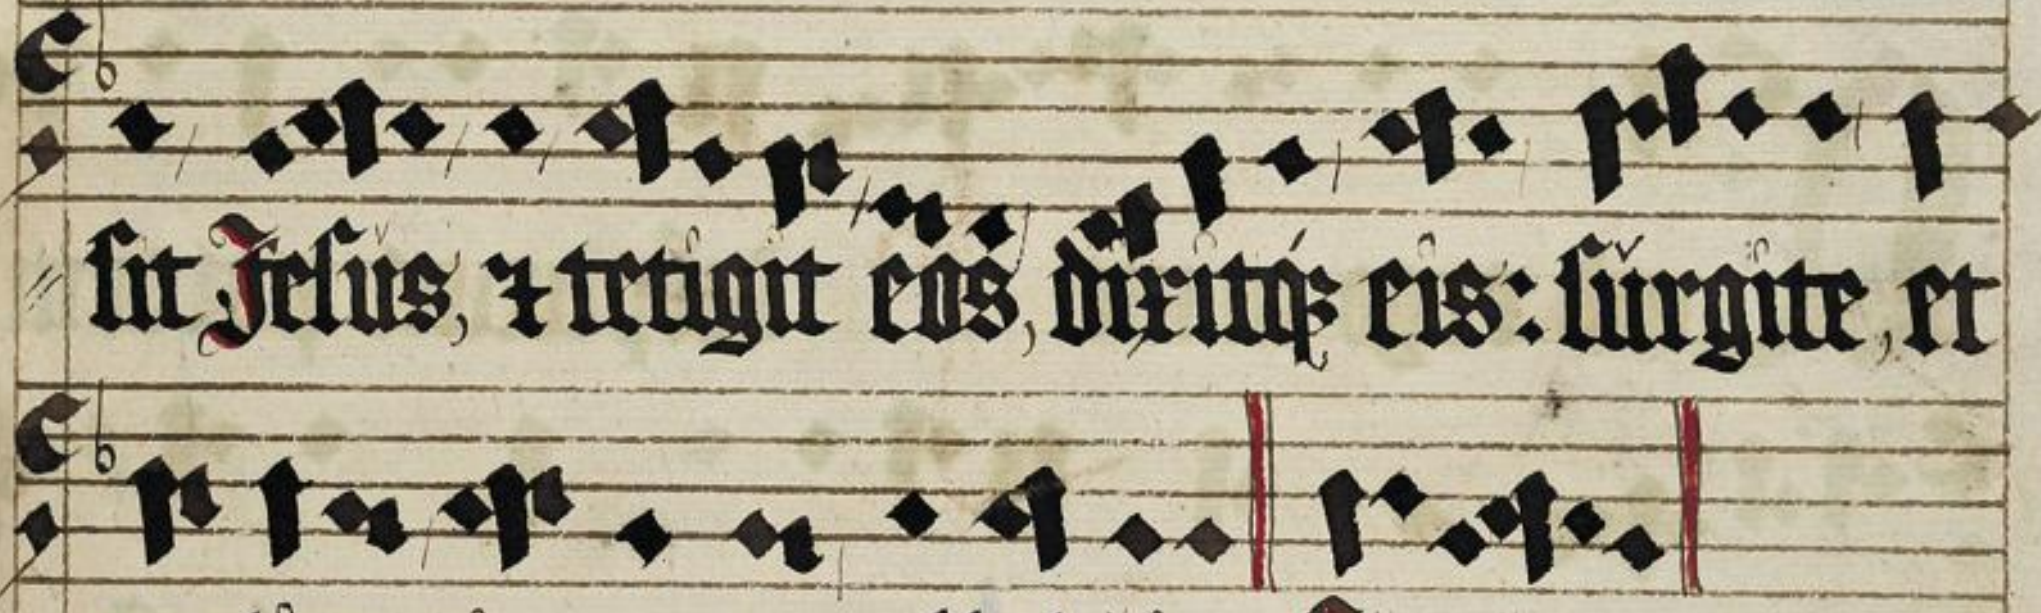 sit Jesus, ⁊ tetigit eos, dixitqꝫ eis: surgite, et